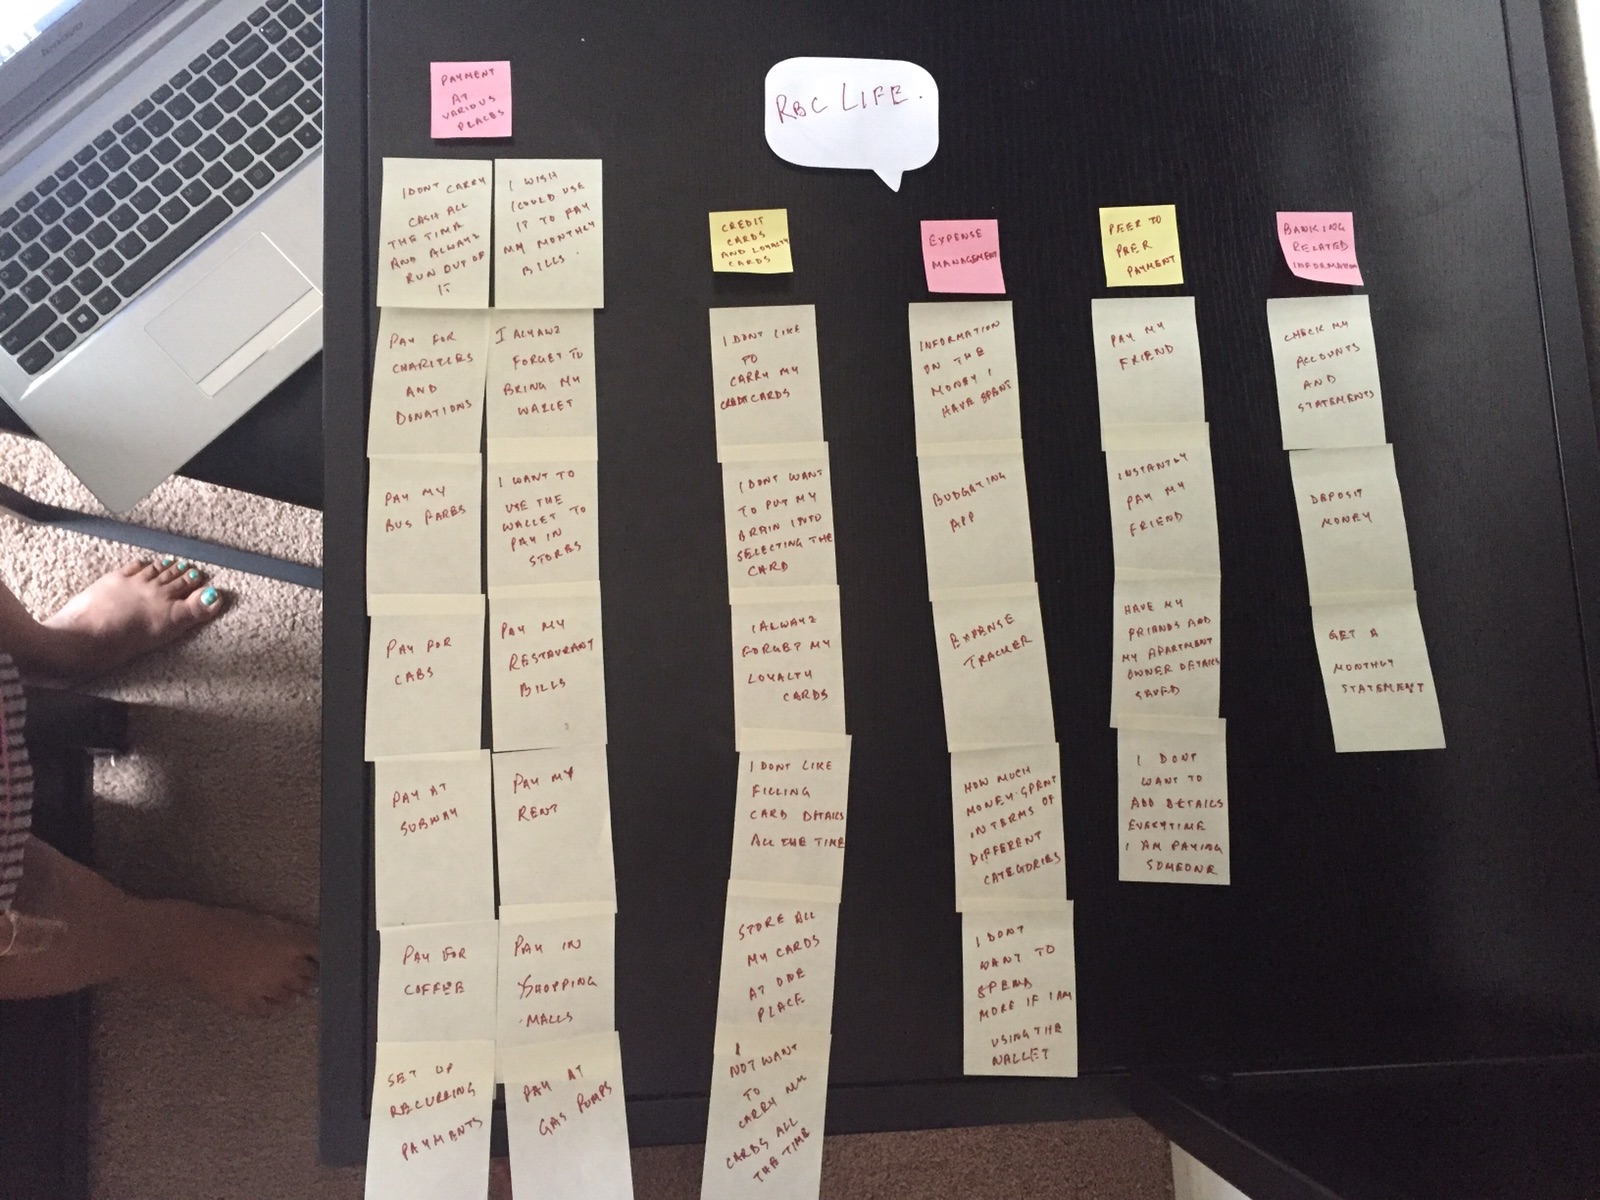 RBC LIFE.
PAYMENT
AT
VARIOUS
PLACES
I DONT CARRY
CASH ALL
THE TIME
AND ALWAYZ
RUN OUT OF
IT
PAY FOR
CHARITIES
AND
DONATIONS
PAY MY
BUS FARES
PAY FOR
CABS
PAY AT
SUBWAY
PAY FOR
COFFEE
SET UP
RECURRING
PAYMENTS
I WISH
I COULD USE
IT TO PAY
MY MONTHLY
BILLS.
I ALYAWZ
FORGET TO
BRING MY
WALLET
I WANT TO
USE THE
WALLET TO
PAY IN
STORES
PAY MY
RESTAURANT
BILLS
PAY MY
RENT
PAY IN
SHOPPING
MALLS
PAY AT
GAS PUMPS
CREDIT
CARDS
AND LOYALTY
CARDS
I DONT LIKE
TO
CARRY MY
CREDITCARDS
I DONT WANT
TO PUT MY
BRAIN INTO
SELECTING THE
CARD
I ALWAYZ
FORGET MY
LOYALTY
CARDS
I DONT LIKE
FILLING
CARD DETAILS
ALL THE TIME
STORE ALL
MY CARDS
AT ONE
PLACE
I
NOT WANT
TO
CARRY MY
CARDS ALL
THE TIME
EXPENSE
MANAGEMENT
INFORMATION
ON THE
MONEY I
HAVE SPENT
BUDGETING
APP
EXPENSE
TRACKER
HOW MUCH
MONEY SPENT
IN TERMS OF
DIFFERENT
CATEGORIES
I DONT
WANT TO
SPEND
MORE IF I AM
USING THE
WALLET
PEER TO
PEER
PAYMENT
PAY MY
FRIEND
INSTANTLY
PAY MY
FRIEND
HAVE MY
FRIENDS AND
MY APARTMENT
OWNER DETAILS
SAVED
I DONT
WANT TO
ADD DETAILS
EVERYTIME
I AM PAYING
SOMEONE
BANKING
RELATED
INFORMATION
CHECK MY
ACCOUNTS
AND
STATEMENTS
DEPOSIT
MONEY
GET A
MONTHLY
STATEMENT